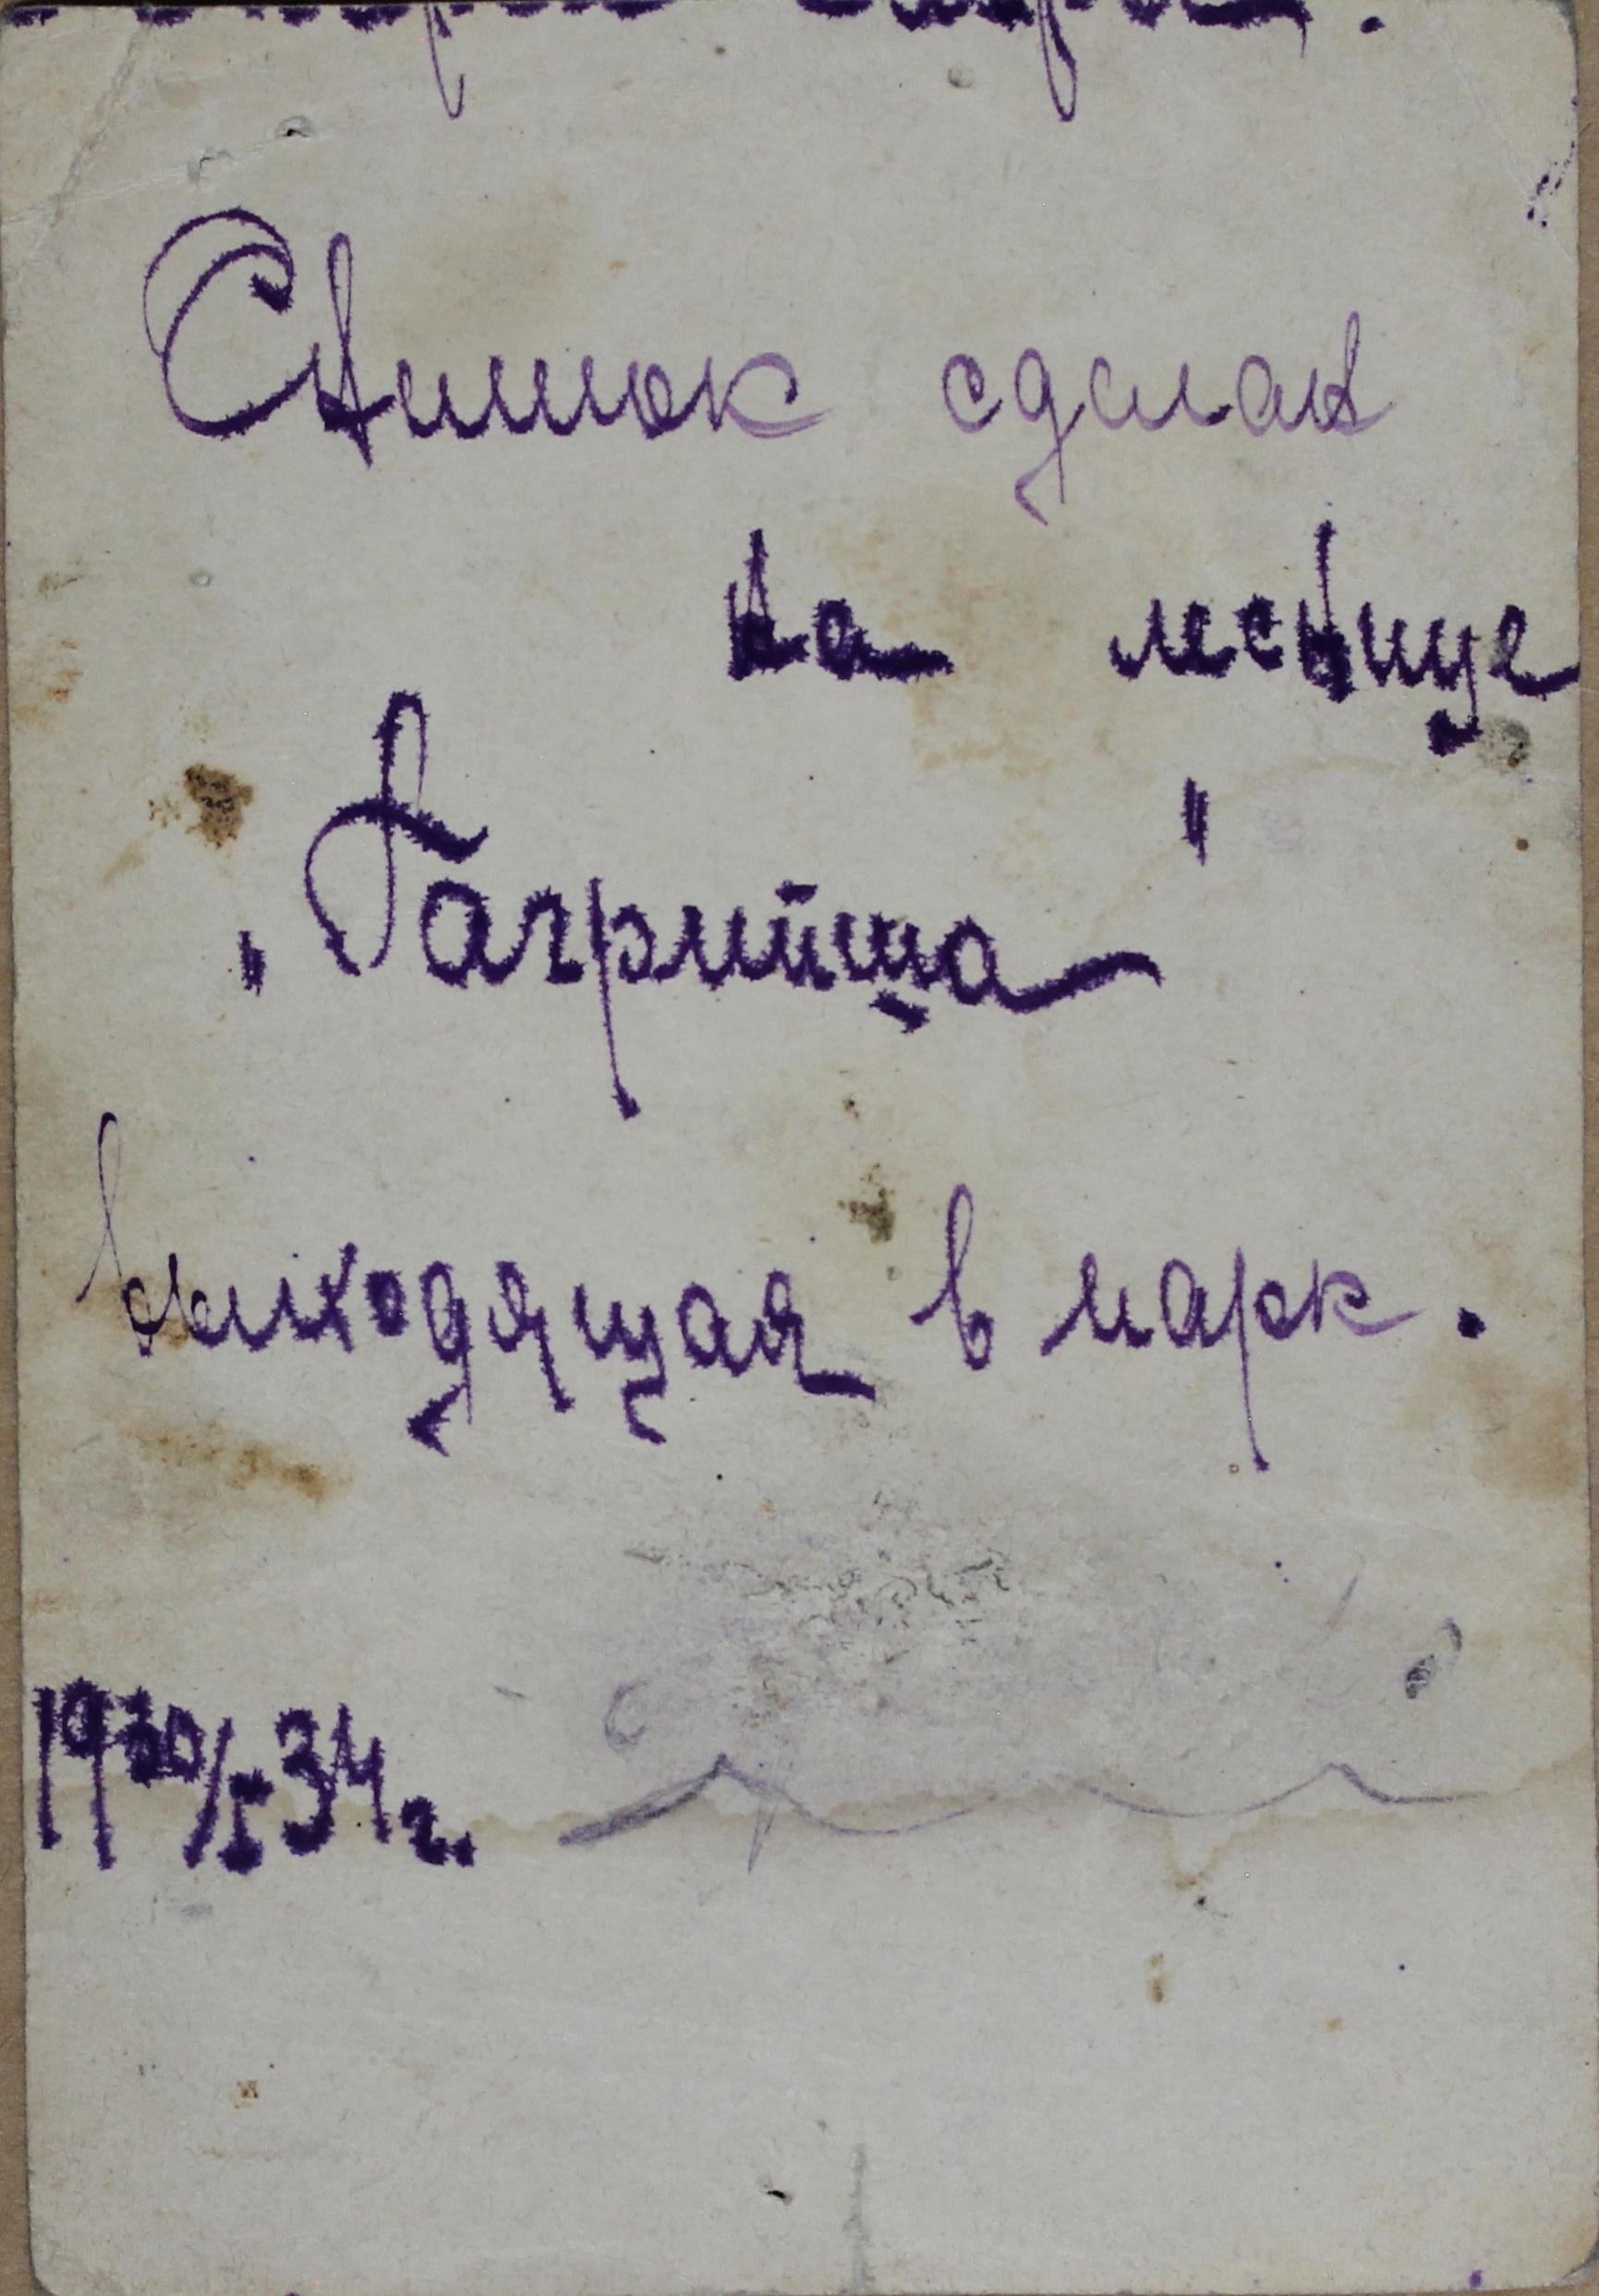 Снимок сделан
на леснице
„Гагрипша"
выходящая в парк.
19 30/I 34 г.